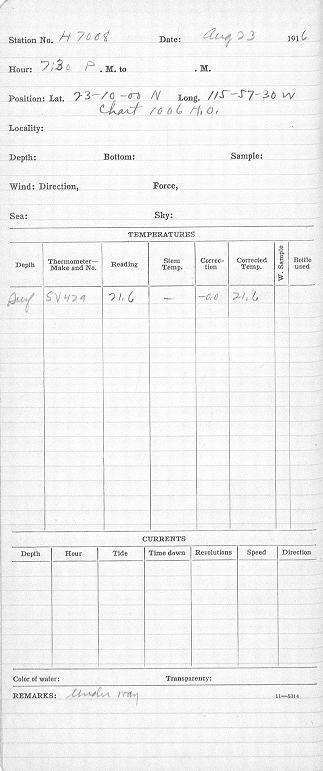 Station No. H 7008 Date: Aug 23 1916
Hour: 7:30 P . M. to . M.
Position: Lat. 23-10-00 N Long. 115-57-30 W
Chart 1006 H.O.
Locality:
Depth: Bottom: Sample:
Wind: Direction, Force,
Sea: Sky:
TEMPERATURES
Depth Thermometer—Make and No. Reading Stem Temp. Correc-tion Corrected Temp. W. Sample Bottle used
Surf SV 429 21.6 — -0.0 21.6
CURRENTS
Depth Hour Tide Time down Revolutions Speed Direction
Color of water: Transparency:
REMARKS: Under way 11—5314